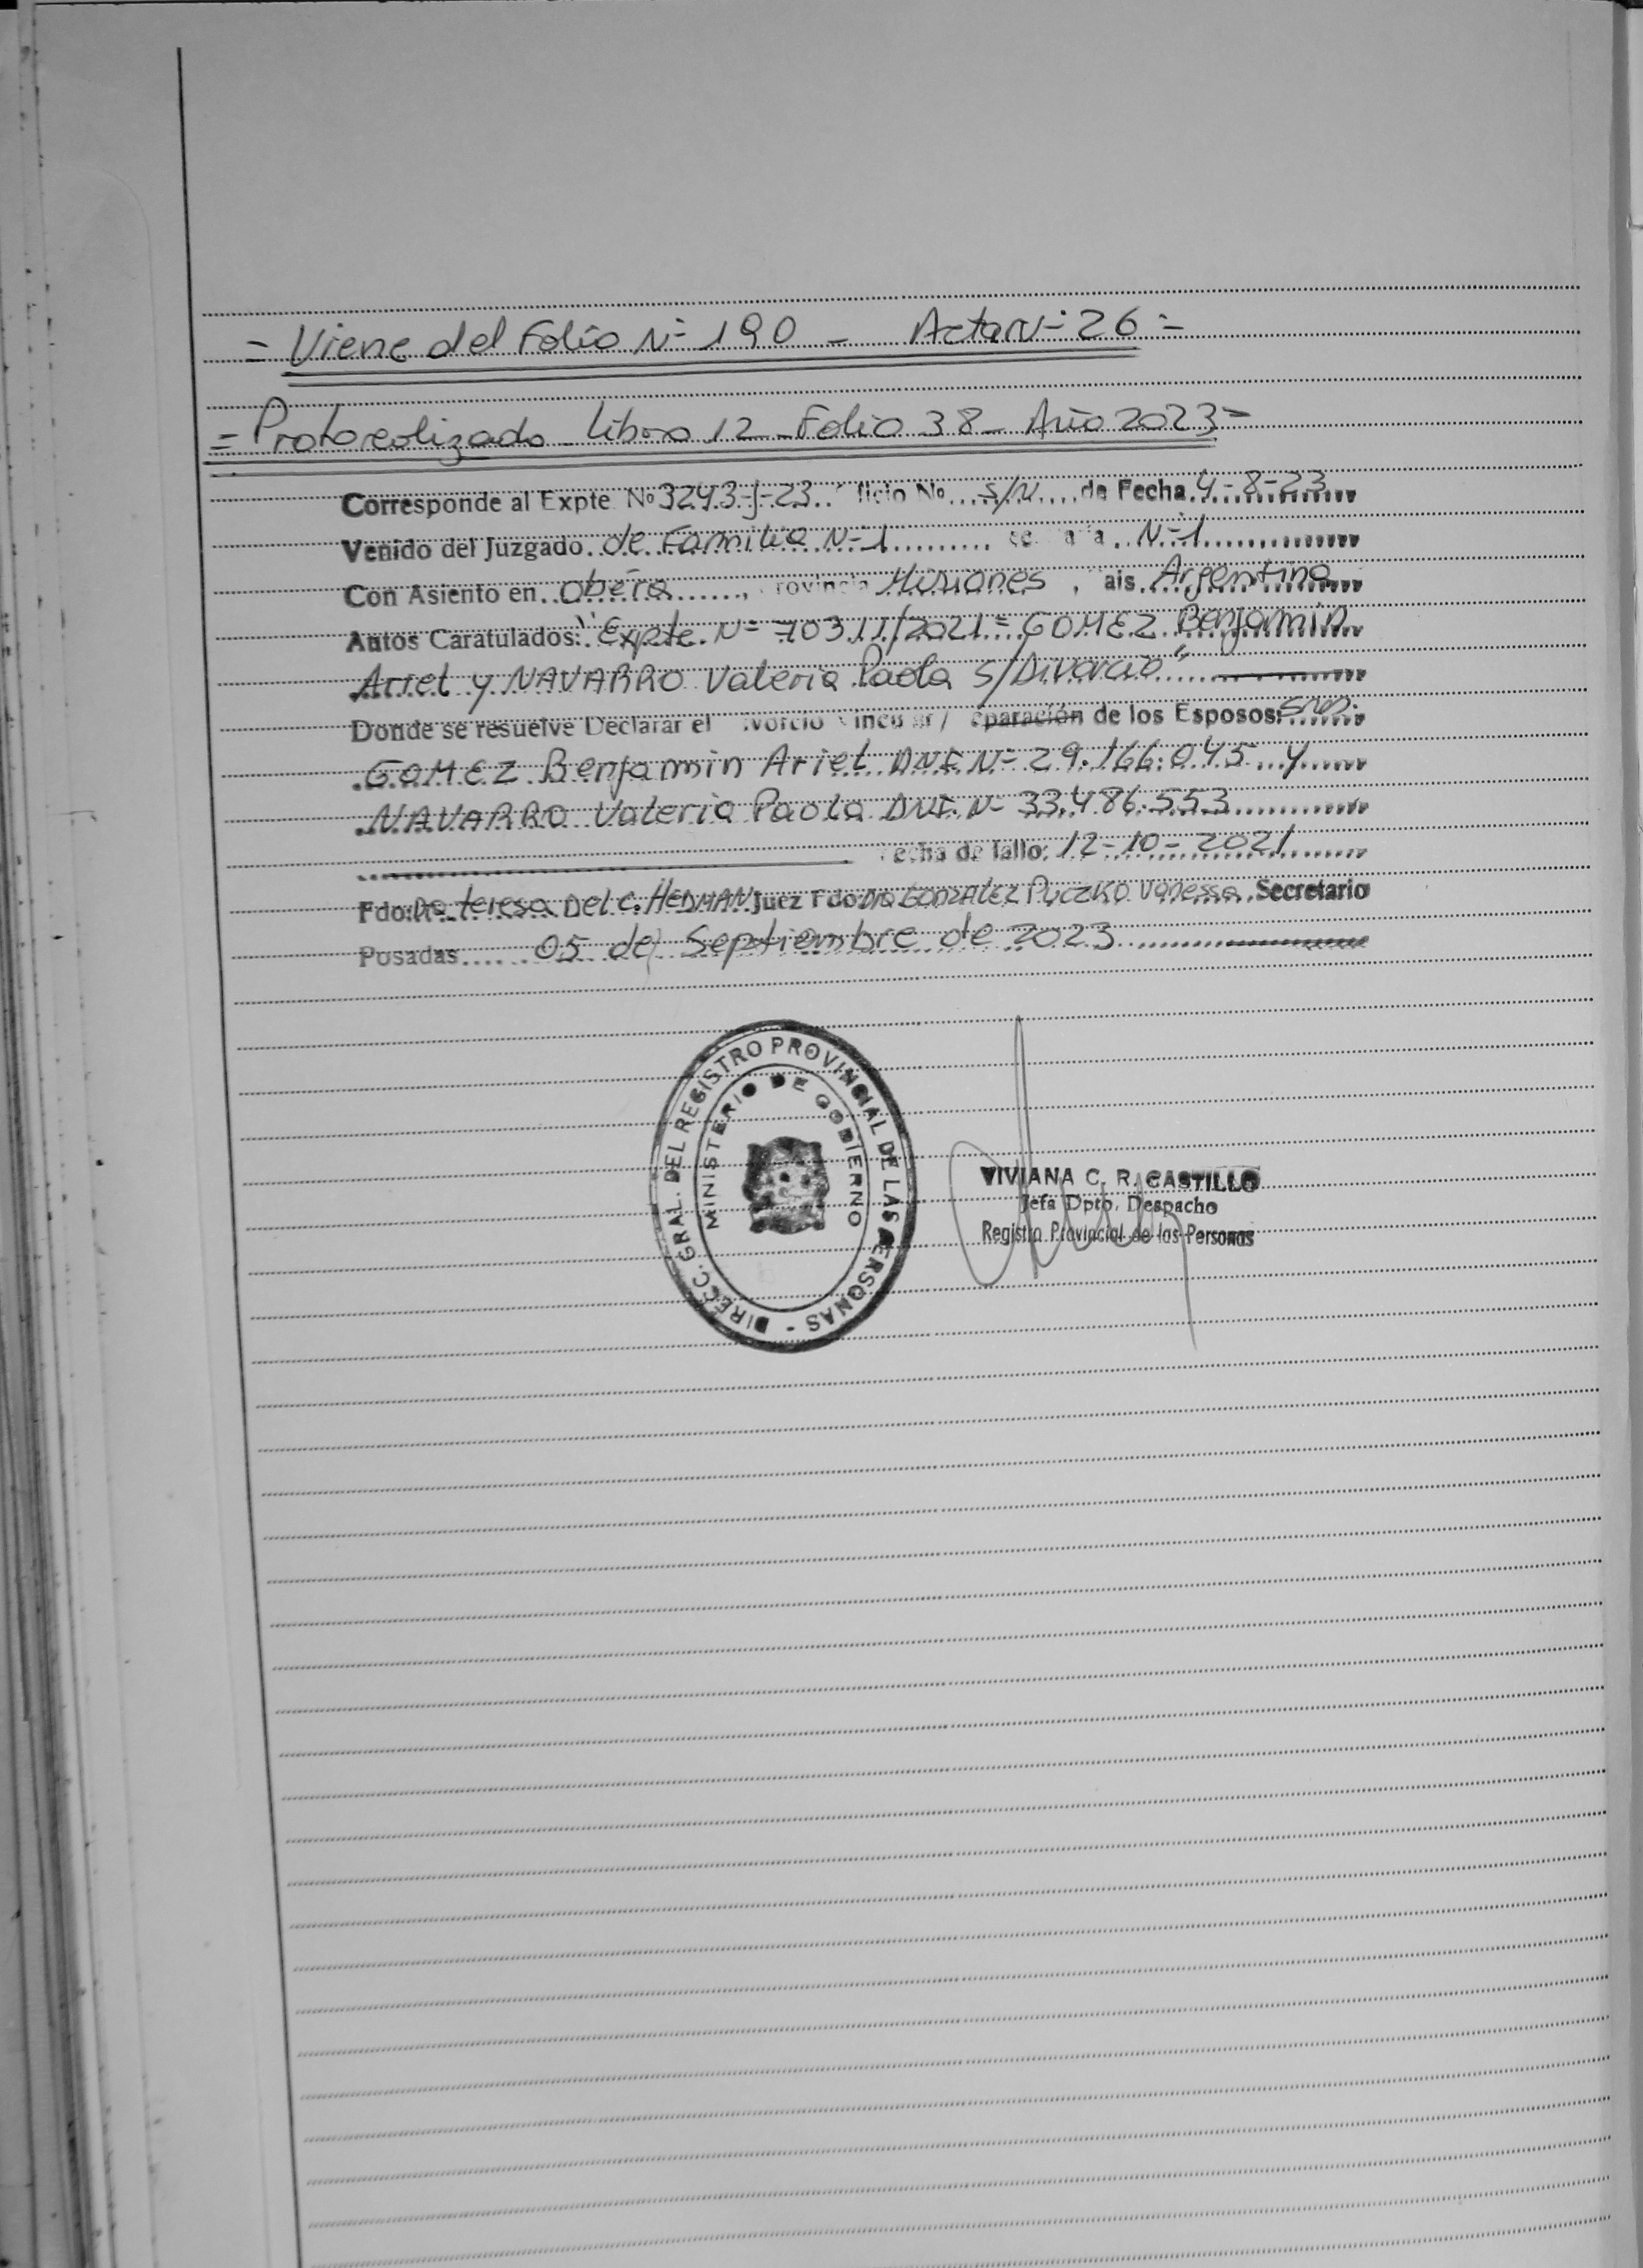 = Viene del Folio N= 190 - Acta N= 26 =
= Protocolizado - Libro 12 - Folio 38 - Año 2023 =
Corresponde al Expte Nº 3243-J-23. ficio No. s/N. de Fecha 4-8-23
Venido del Juzgado de Familia N=1 N=1
Con Asiento en Oberá, rovincia Misiones, ais Argentina
Autos Caratulados: "Expte. N= 70311/2021= GOMEZ Benjamin
Ariel y NAVARRO Valeria Paola S/Divorcio"
Donde se resuelve Declarar el ivorcio Vincular/ eparación de los Esposos: Sres.
GOMEZ Benjamin Ariel DNI N= 29.166.045 y
NAVARRO Valeria Paola DNI N= 33.486.553
Fecha de fallo: 12-10-2021
Fdo: Dra Teresa Del C. HEDMAN Juez Fdo Dra GONZALEZ PUCZKO Vanessa. Secretario
Posadas 05 de Septiembre de 2023
DIRECC. GRAL. DEL REGISTRO PROVINCIAL DE LAS PERSONAS -
MINISTERIO DE GOBIERNO
VIVIANA C. R. CASTILLO
Jefa Dpto. Despacho
Registro Provincial de las Personas